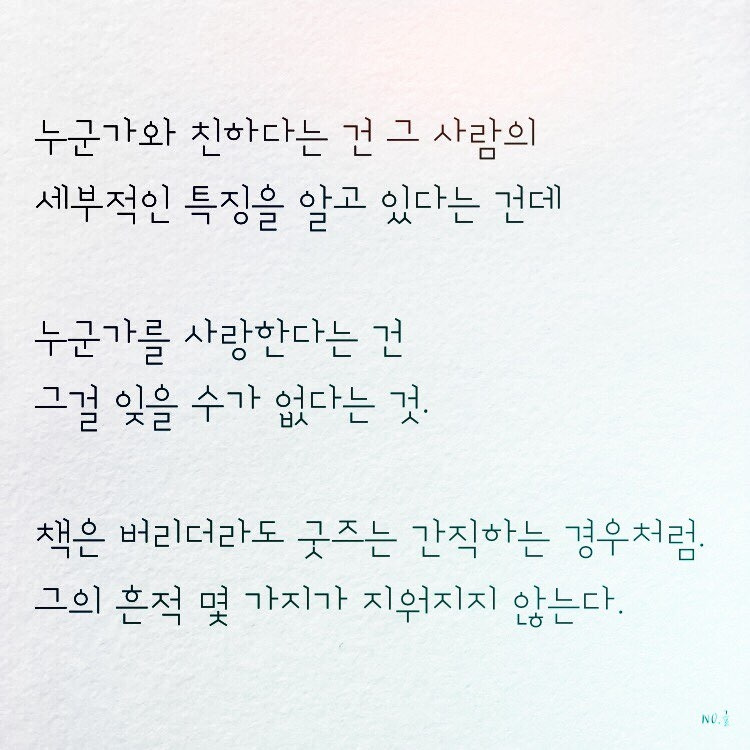 누군가와 친하다는 건 그 사람의
세부적인 특징을 알고 있다는 건데
누군가를 사랑한다는 건
그걸 잊을 수가 없다는 것.
책은 버리더라도 굿즈는 간직하는 경우처럼.
그의 흔적 몇 가지가 지워지지 않는다.
NO.